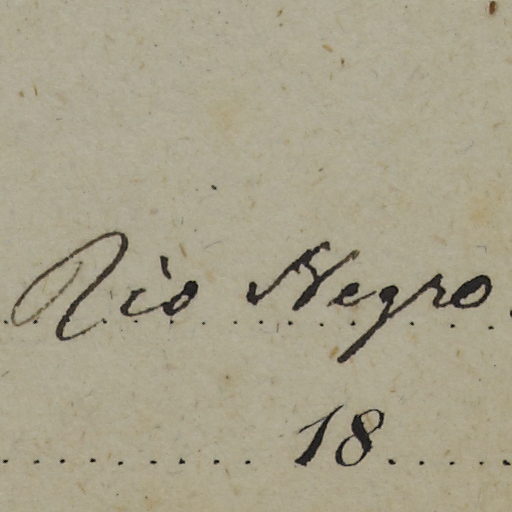 Rio Negro
18